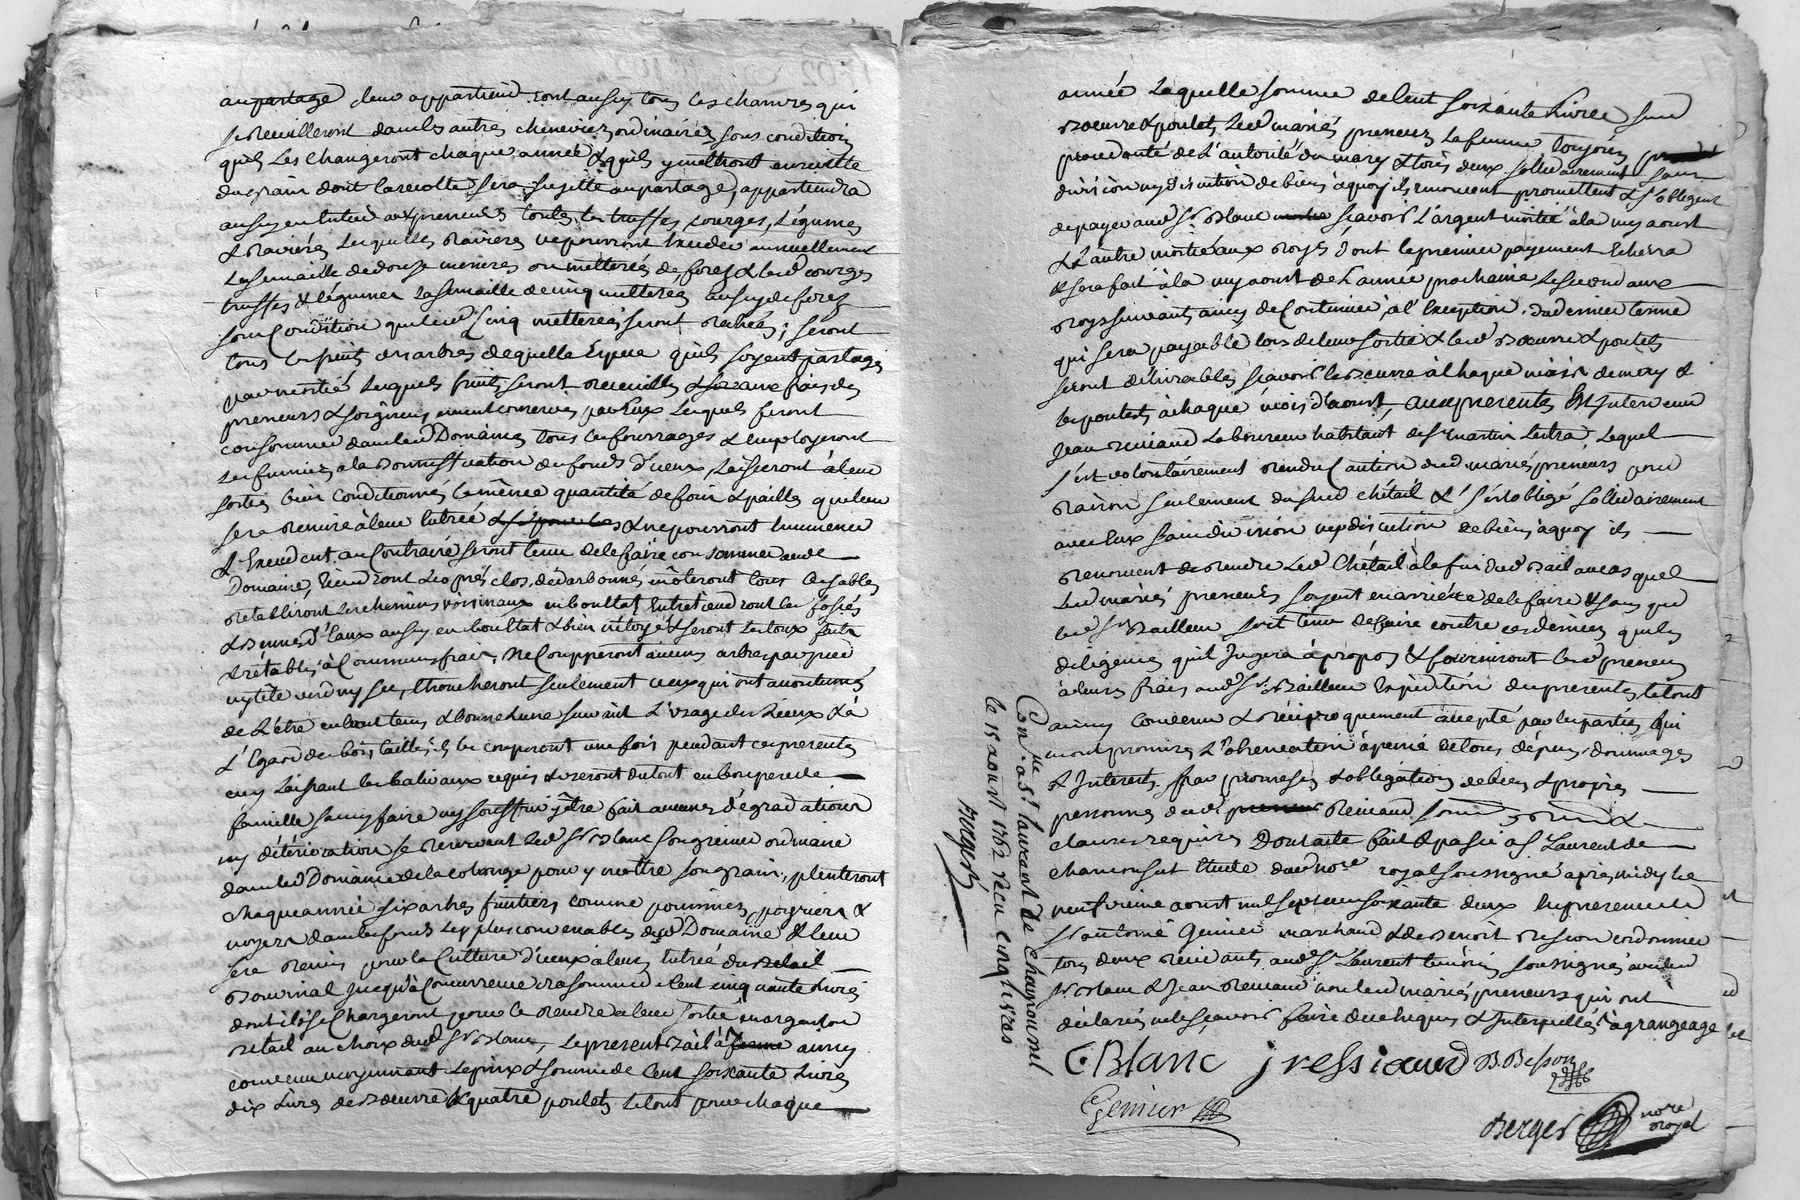 au partage leur appartiend ront aussy tous les chanvres qui
se recuilleront dans les autres cheneviers ordinaires sous condition
quils les changeront chaque année & quils y mettront ensuitte
du grain dont la recolte sera sujette au partage, appartiendra
aussy en entier aux preneurs toutes les truffes, courges, Légumes
& raviéres lesquelles ravieres ne pourront Exceder annuellement
La semaille de douze mesures ou metterées de forez & lesd courges
truffes & légumes La semaille de cinq metterées aussy de forez
sous Condition que lesd Cinq metterées seront
tous les fruits des arbres de quelle Espece quils soyent partagés
par moitié Lesquels fruits seront recuillis aux frais des
preneurs & soigneusement conservés par Eux Lesquels feront
consommer dans led Domaine tous les fourrages & Employeront
Les fumiers a la bonniffication du fonds d'iceux, Laisseront à leur
sortie bien Conditionnés La même quantité de foin & pailles que leur
sera remise à leur Entrée & ne pourront
& Excedent au Contraire seront tenu de le faire consommer aud
Domaine, tiendront les prés clos, en oteront tous les sables
retabliront les chemins voisinaux en bon Etat Entretiendront les fossés
d'eaux aussy en bon Etat & bien netoyé & seront les toux faits
& retablis à Communs frais, Ne Coupperont aucuns arbres par pied
ny tête verd ny sec, Etroncheront seulement ceux qui ont accoutumés
de L'être en bon tems & bonne Lune suivant L'usage des Lieux & à
L'Egard des bois, taillis, ils les couperont une fois pendant ces presentes
en y Laissant les baliveaux requis & useront du tout en bon pere de
famille sans y faire ny souffrir y être fait aucunes dégradations
ny déterioration se reservant led Sr Blanc son grenier ordinaire
dans led Domaine de la colonge pour y mettre son grain, plenteront
chaque année six arbres fruitiers comme pommiers, poyriers &
noyers dans les fonds les plus convenables dud Domaine & leur
sera remis pour la Culture d'iceux à leur Entrée du Betail
Bouvinal jusqu'à Concurrence de la somme de Cent cinquante livres
dont ils se Chargeront pour le rendre a leur sortie en argent ou
Betail au choix dud Sr Blanc, Le present Bail à ainsy
convenu moyennant Le prix & somme de Cent soixante Livres
dix Livres de Beurre & quatre poulets Le tout pour chaque
année Laquelle somme de Cent soixante Livres
Beurre & poulets Lesd mariés preneurs La femme toujours
procedante de L'autorité du mary & tous deux sollidairement sans
division ny discution de biens à quoy ils renoncent promettent & s'obligent
de payer aud Sr Blanc scavoir L'argent moitié à la my aoust
& L'autre moitié aux roys dont le premier payement Echerra
& sera fait à la my aoust de L'année prochaine Le second aux
roys suivants ainsy de Continuer, à L'Exception du dernier terme
qui sera payable lors de leur sortie & lesd Beurre & poulets
seront délivrables scavoir le Beurre à chaque mois de may &
les poulets à chaque mois d'aoust, aux presentes Est Intervenu
Jean ressiand Laboureur habitant de St martin Lestra, Lequel
s'est volontairement rendu Caution desd mariés preneurs pour
raison seulement du susd chétail & s'est obligé sollidairement
avec Eux sans division ny discution de biens à quoy ils
renoncent de rendre Led Chétail à la fin dud Bail au cas que
Lesd mariés preneurs soyent en arriére de le faire & sans que
led Sr Bailleur soit tenu de faire contre ces derniers que les
diligences qu'il Jugera à propos & fourniront lesd preneurs
à leurs frais aud Sr Bailleur Expédition des presentes Le tout
ainsy Convenu & réciproquement accepté par les parties qui
m'ont promises L'observation à peine de tous dépens, dommages
& Interests par promesses & obligations de biens & propres
personnes dud ressiand
clauses requises Dont acte fait & passé à St Laurent de
chamousset Etude dud nore royal soussigné après midy Le
neuf vieme aoust mil sept cent soixante deux En presence de
Sr antoine Genier marchand & de Benoit Besson cordonnier
tous deux residants aud St Laurent temoins soussignés avec led
Sr Blanc & Jean ressiand non lesd mariés preneurs qui ont
déclarés ne le scavoir faire de ce Enquis & Interpellés à grangeage
C Blanc J ressiaud B. Besson
Genier
Berger nore royal
Connlle a St laurent de Chamousset
le 15 aoust 1762 recu cinq livres
Berger